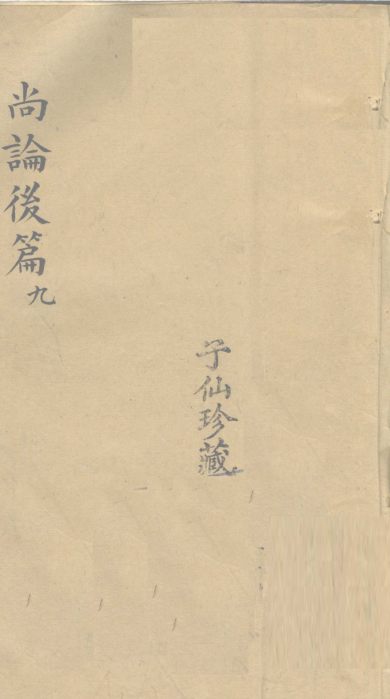 尚論後篇九
子仙珍藏